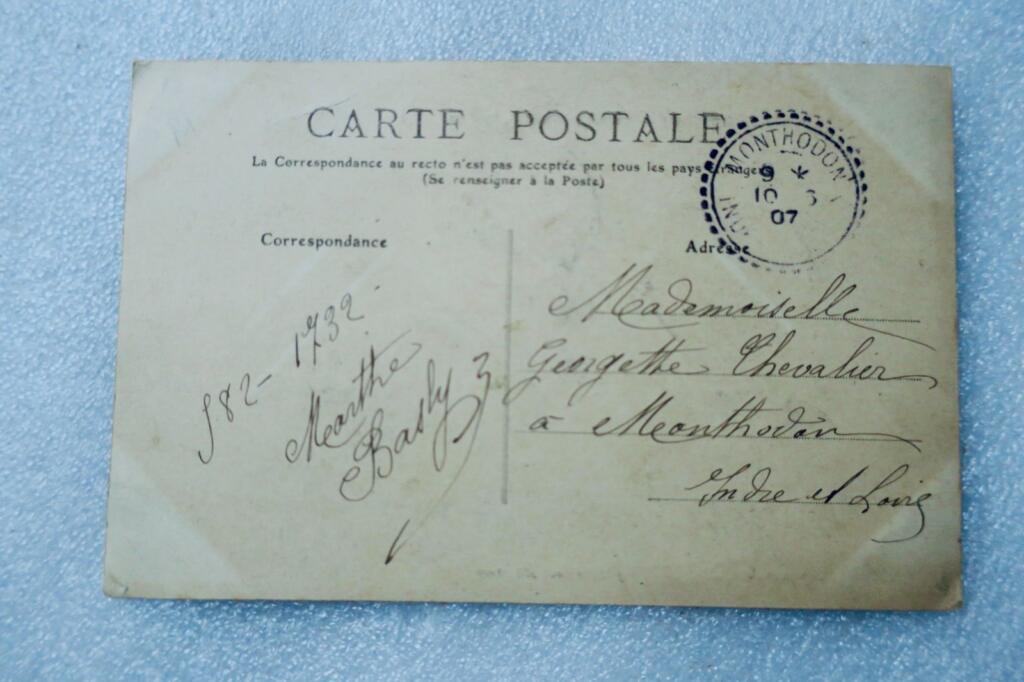 CARTE POSTALE
La Correspondance au recto n'est pas acceptée par tous les pays étrangers
(Se renseigner à la Poste)
MONTHODON
9 *
10 6
07
Correspondance
Adresse
1732-
582-
Marthe
Basly
Mademoiselle
Georgette Chevalier
à Monthodon
Indre et Loire